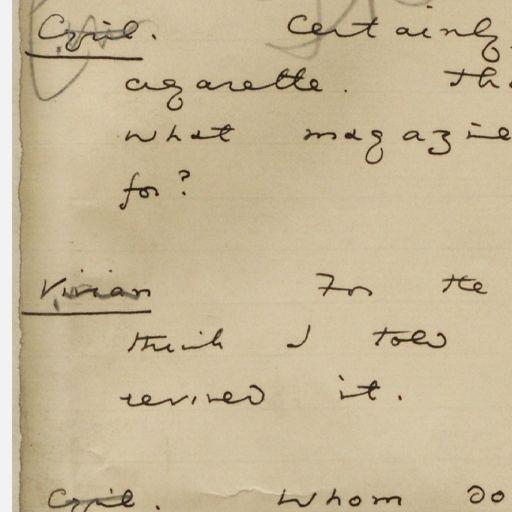 Cyril. Certainly.
cigarette. Th
what magazine
for?
Vivian For the
think I told
revived it.
Cyril. Whom do